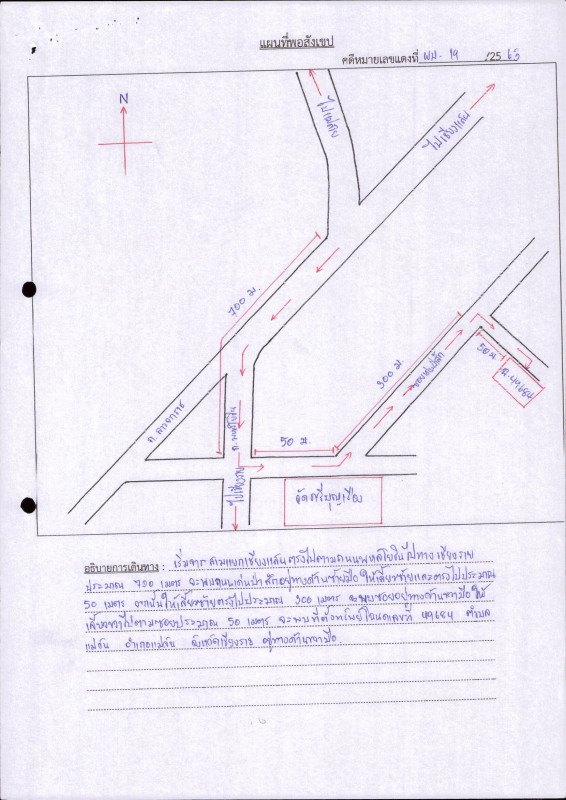 แผนที่พอสังเขป
คดีหมายเลขแดงที่ ผบ. 19 /25 63
N
ไปแม่สาย
ไปเชียงแสน
700 ม.
300 ม.
50 ม.
ด. 49684
50 ม.
ถ. พหลโยธิน
ไปเชียงราย
วัดศรีบุญเรือง
อธิบายการเดินทาง : เริ่มจาก สามแยกเชียงแสน ตรงไปตามถนนพหลโยธิน ไปทาง เชียงราย
ประมาณ 700 เมตร จะพบถนน อยู่ทางด้านซ้ายมือ ให้เลี้ยวซ้ายและตรงไปประมาณ
50 เมตร จากนั้นให้เลี้ยวซ้ายตรงไปประมาณ 300 เมตร จะพบซอยอยู่ทางด้านขวามือ ให้
เลี้ยวขวาไปตามซอยประมาณ 50 เมตร จะพบที่ตั้งทรัพย์โฉนดเลขที่ 49684 ตำบล
แม่จัน อำเภอแม่จัน จังหวัดเชียงราย อยู่ทางด้านขวามือ